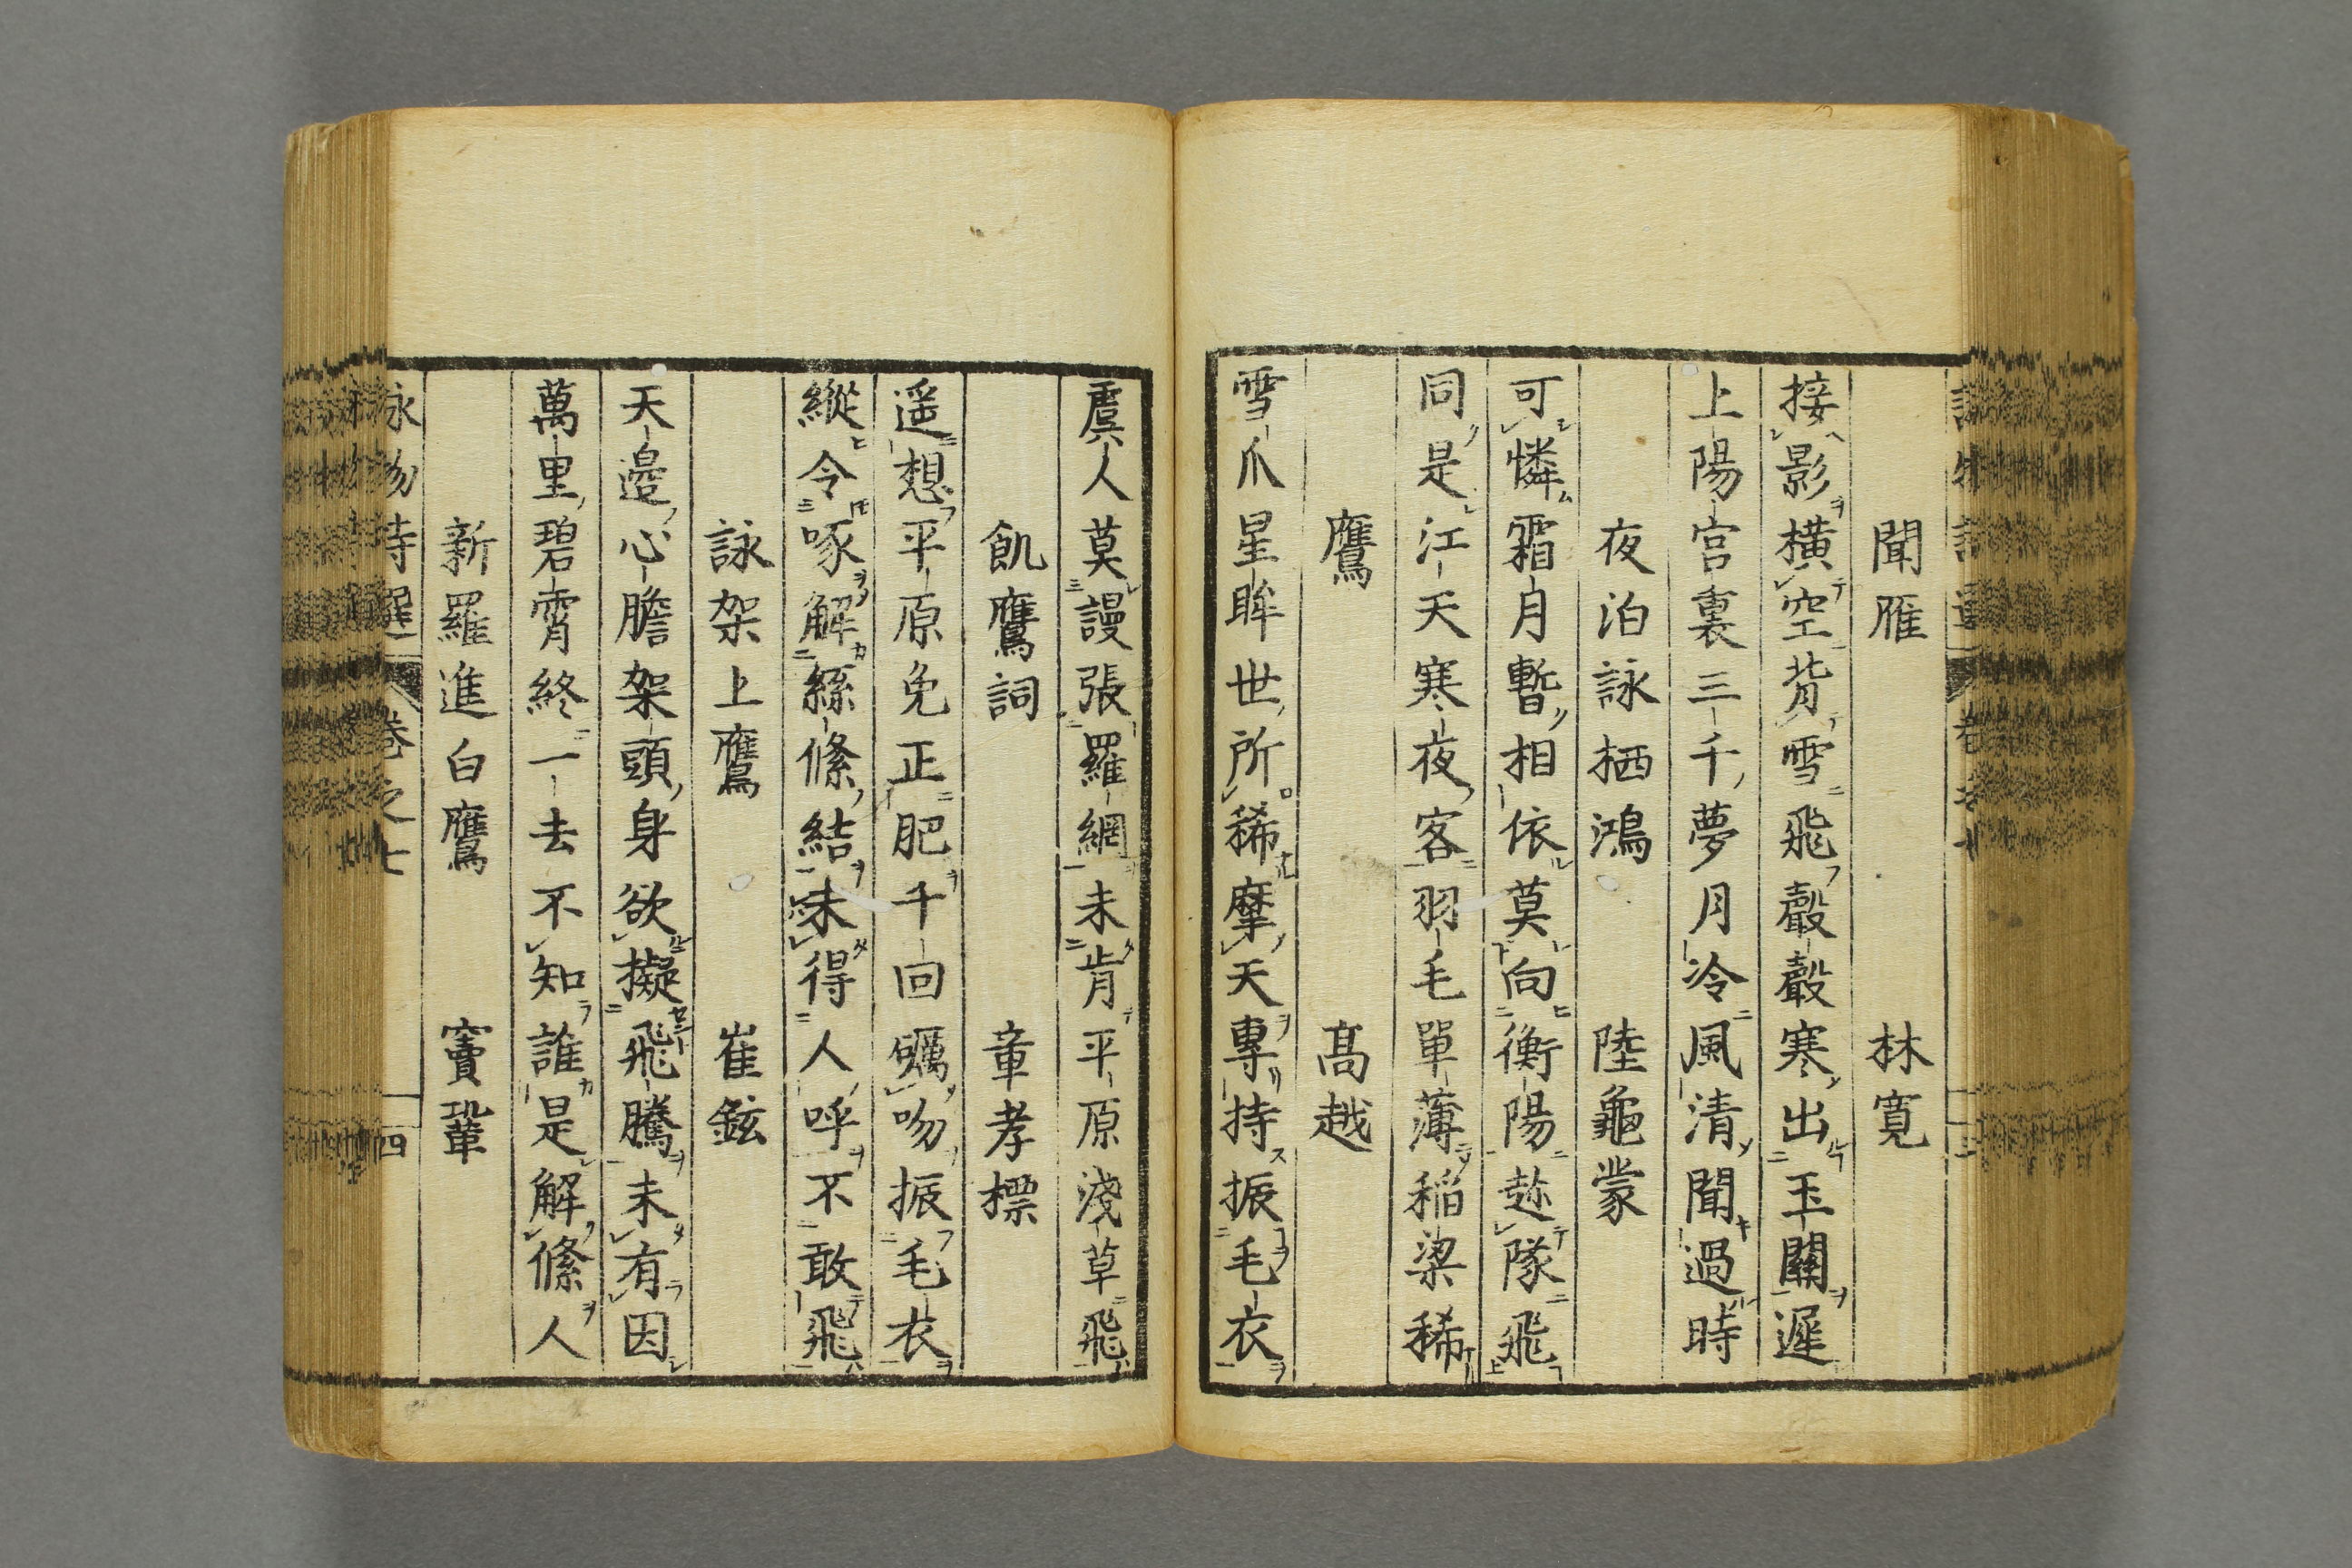 聞雁　林寛
接影橫空背雪飛聲聲寒出玉關遲
上陽宮裏三千夢月冷風清聞過時
夜泊詠栖鴻　陸龜蒙
可憐霜月暫相依莫向衡陽趂隊飛
同是江天寒夜客羽毛單薄稲粱稀
鷹　髙越
雪爪星眸世所稀摩天專持振毛衣
虞人莫謾張羅網未肯平原淺草飛
飢鷹詞　章孝標
遥想平原兔正肥千回礪吻振毛衣
縱令啄解絲絛結未得人呼不敢飛
詠架上鷹　崔鉉
天邉心膽架頭身欲擬飛騰未有因
萬里碧霄終一去不知誰是解絛人
新羅進白鷹　竇鞏
詠物詩選　卷之七　四